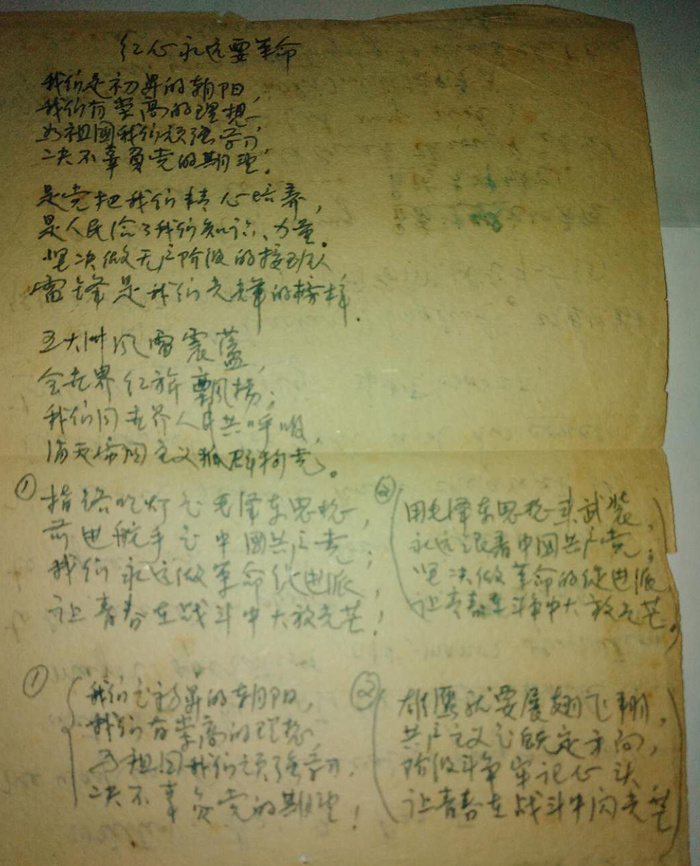 红心永远要革命
我们是初升的朝阳,
我们有崇高的理想。
为祖国我们顽强学习,
决不辜负党的期望!
是党把我们精心培养,
是人民给了我们知识、力量。
坚决做无产阶级的接班人
雷锋是我们光辉的榜样.
五大洲风雷震荡,
全世界红旗飘扬;
我们同世界人民共呼吸,
消灭帝国主义狐群狗党。
① 指路明灯是毛泽东思想,
前进舵手是中国共产党;
我们永远做革命促进派
让青春在战斗中大放光芒!
② 用毛泽东思想来武装,
永远跟着中国共产党;
坚决做革命的促进派,
让青春在斗争中大放光芒.
① 我们是初升的朝阳,
我们有崇高的理想
为祖国我们顽强学习.
决不辜负党的期望!
② 雄鹰就要展翅飞翔,
共产主义是既定方向,
阶级斗争牢记心头
让青春在战斗中闪光芒